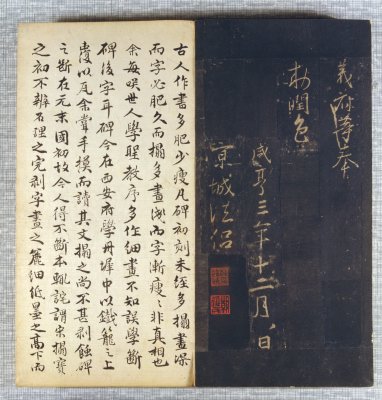 義府等奉
敕潤色
咸亨三年十二月八日
京城法侶
古人作書多肥少瘦凡碑初刻未經多搨畫深
而字必肥久而搨多畫淺而字漸瘦〻非真相也
余每嘆世人學聖教序多作細畫不知誤學斷
碑後字耳碑今在西安府學丹墀中以鐵籠之上
覆以瓦余嘗手摸而讀其文搨之尚不甚剝蝕碑
之斷在元末國初故今人得不斷本輒詫謂宋搨寶
之初不辨石理之完剝字畫之麤細紙墨之高下而